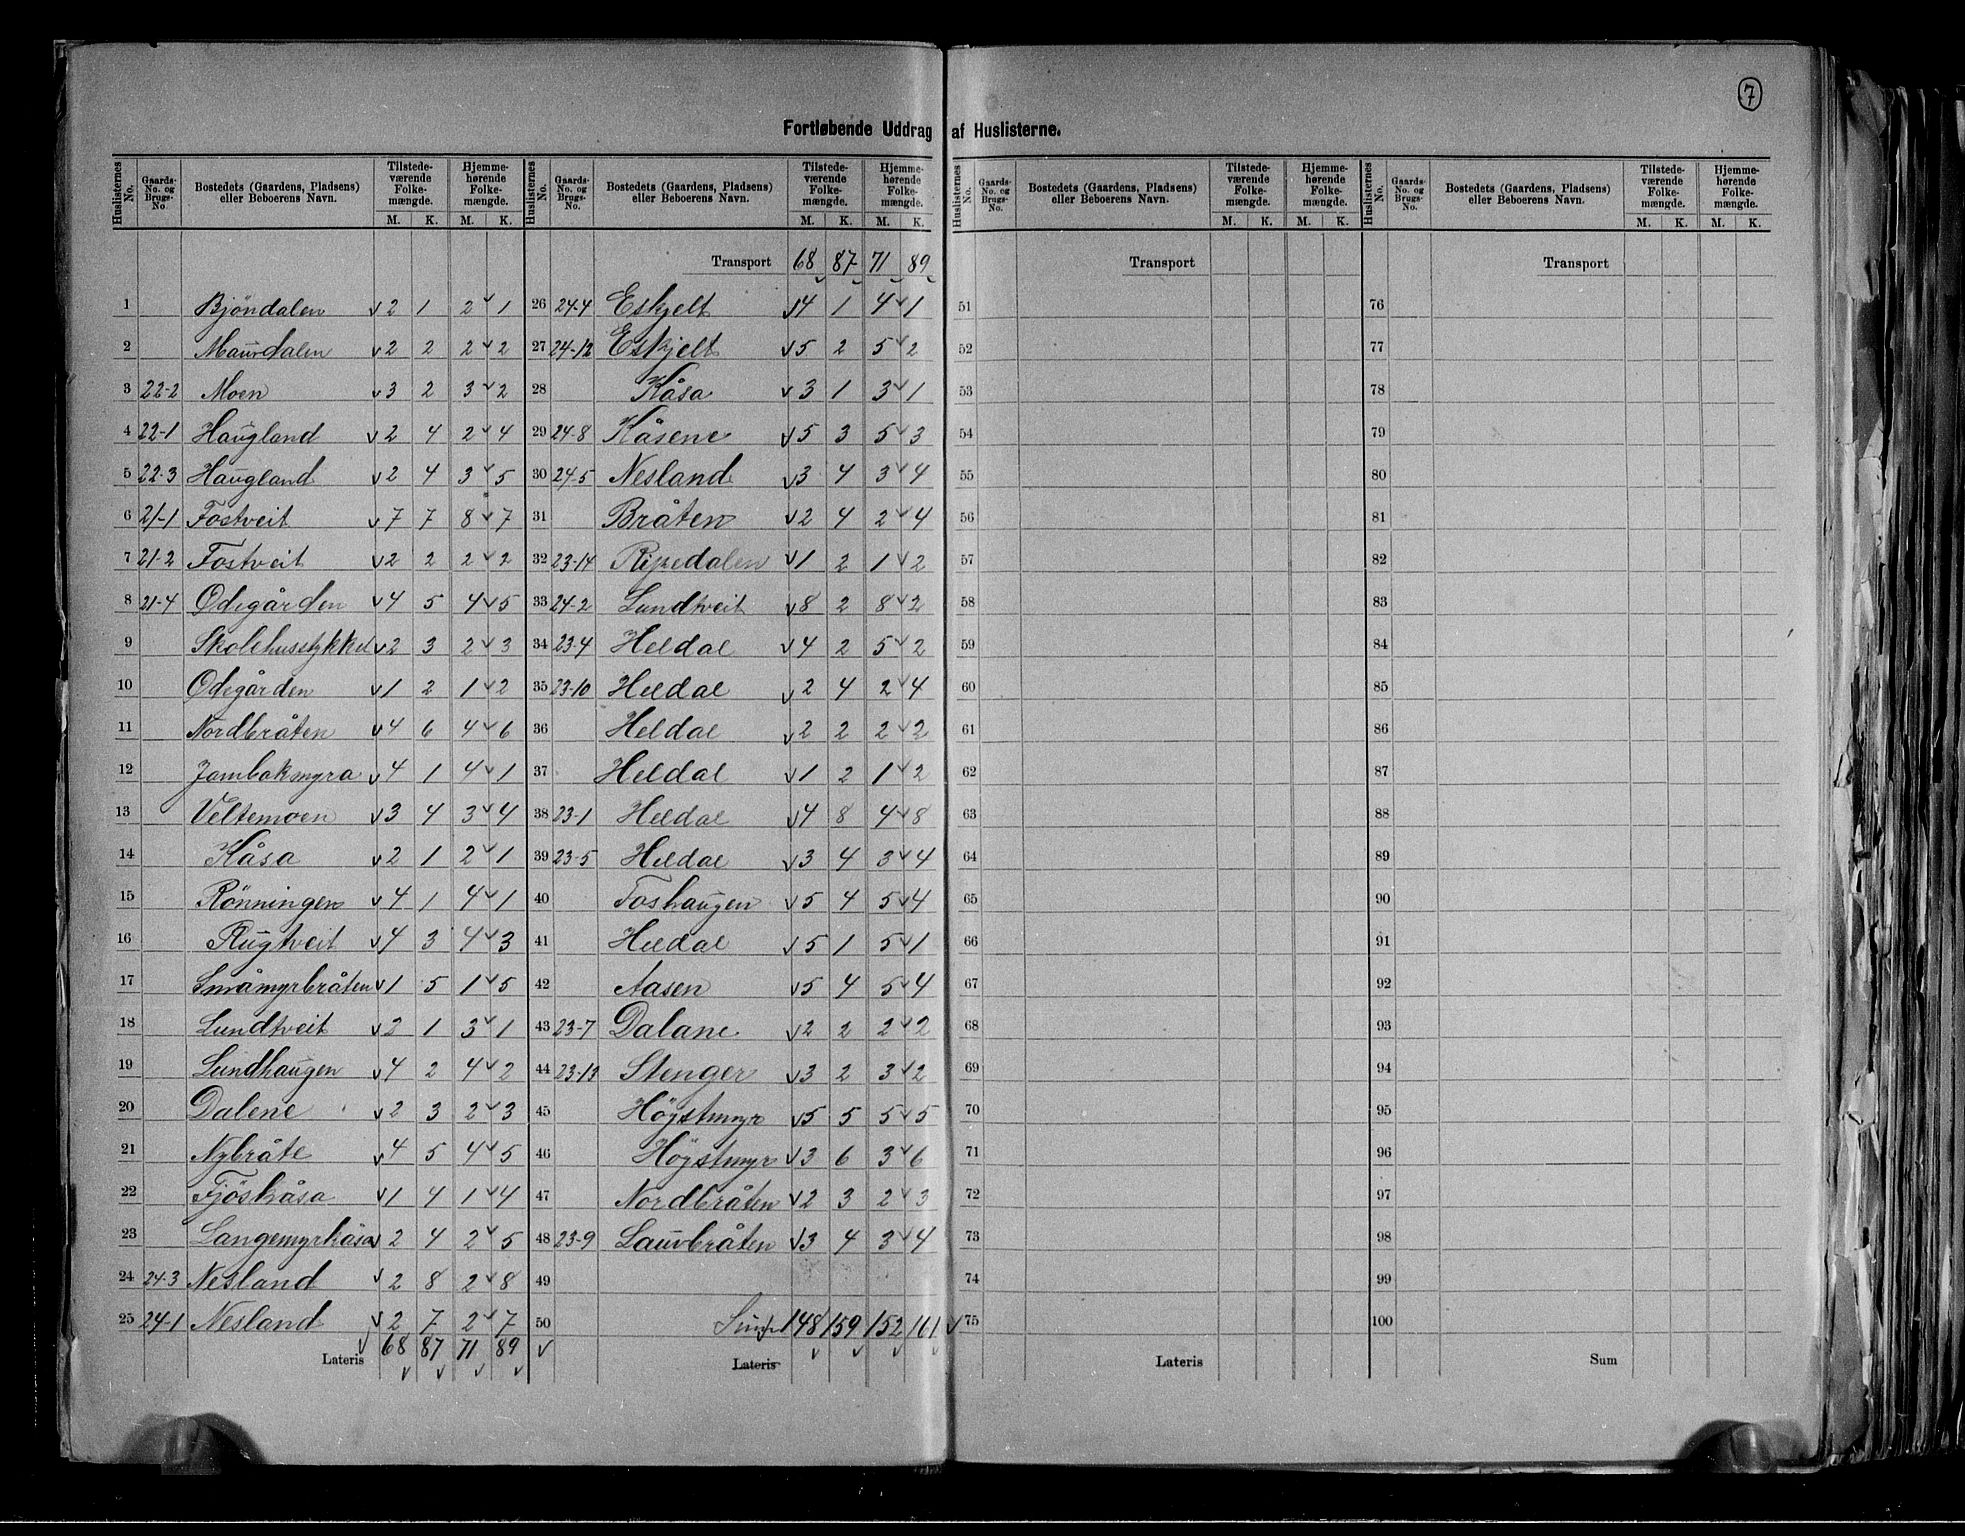 7
Fortløbende Uddrag af Huslisterne.
Huslisternes No. Gaards-No. og Brugs-No. Bostedets (Gaardens, Pladsens) eller Beboerens Navn. Tilstede-værende Folke-mængde. M. K. Hjemme-hørende Folke-mængde. M. K.
1 Bjöndalen 2 1 2 1
2 Maurdalen 2 2 2 2
3 22-2 Moen 3 2 3 2
4 22-1 Haugland 2 4 2 4
5 22-3 Haugland 2 4 3 5
6 21-1 Fostveit 7 7 8 7
7 21-2 Fostveit 2 2 2 2
8 21-4 Ödegården 4 5 4 5
9 Skolehusstykket 2 3 2 3
10 Ödegården 1 2 1 2
11 Nordbråten 4 6 4 6
12 Jambakmyra 4 1 4 1
13 Veltemoen 3 4 3 4
14 Kåsa 2 1 2 1
15 Rönningen 4 1 4 1
16 Rugtveit 4 3 4 3
17 Småmyrbråten 1 5 1 5
18 Lundtveit 2 1 3 1
19 Lundhaugen 4 2 4 2
20 Dalene 2 3 2 3
21 Nybråte 4 5 4 5
22 Fjöskåsa 1 4 1 4
23 Langemyrkåsa 2 4 2 5
24 24-3 Nesland 2 8 2 8
25 24-1 Nesland 2 7 2 7
Lateris 68 87 71 89
Huslisternes No. Gaards-No. og Brugs-No. Bostedets (Gaardens, Pladsens) eller Beboerens Navn. Tilstede-værende Folke-mængde. M. K. Hjemme-hørende Folke-mængde. M. K.
Transport 68 87 71 89
26 24-4 Eskjelt 4 1 4 1
27 24-12 Eskjelt 5 2 5 2
28 Kåsa 3 1 3 1
29 24-8 Kåsene 5 3 5 3
30 24-5 Nesland 3 4 3 4
31 Bråten 2 4 2 4
32 23-14 Ripedalen 1 2 1 2
33 24-2 Lundtveit 8 2 8 2
34 23-4 Heldal 4 2 5 2
35 23-10 Heldal 2 4 2 4
36 Heldal 2 2 2 2
37 Heldal 1 2 1 2
38 23-1 Heldal 4 8 4 8
39 23-5 Heldal 3 4 3 4
40 Foshaugen 5 4 5 4
41 Heldal 5 1 5 1
42 Aasen 5 4 5 4
43 23-7 Dalane 2 2 2 2
44 23-13 Stenger 3 2 3 2
45 Höjstmyr 5 5 5 5
46 Höjstmyr 3 6 3 6
47 Nordbråten 2 3 2 3
48 23-9 Lauvbråten 3 4 3 4
49
50 148 159 152 161
Lateris
Huslisternes No. Gaards-No. og Brugs-No. Bostedets (Gaardens, Pladsens) eller Beboerens Navn. Tilstede-værende Folke-mængde. M. K. Hjemme-hørende Folke-mængde. M. K.
Transport
51
52
53
54
55
56
57
58
59
60
61
62
63
64
65
66
67
68
69
70
71
72
73
74
75
Lateris
Huslisternes No. Gaards-No. og Brugs-No. Bostedets (Gaardens, Pladsens) eller Beboerens Navn. Tilstede-værende Folke-mængde. M. K. Hjemme-hørende Folke-mængde. M. K.
Transport
76
77
78
79
80
81
82
83
84
85
86
87
88
89
90
91
92
93
94
95
96
97
98
99
100
Sum